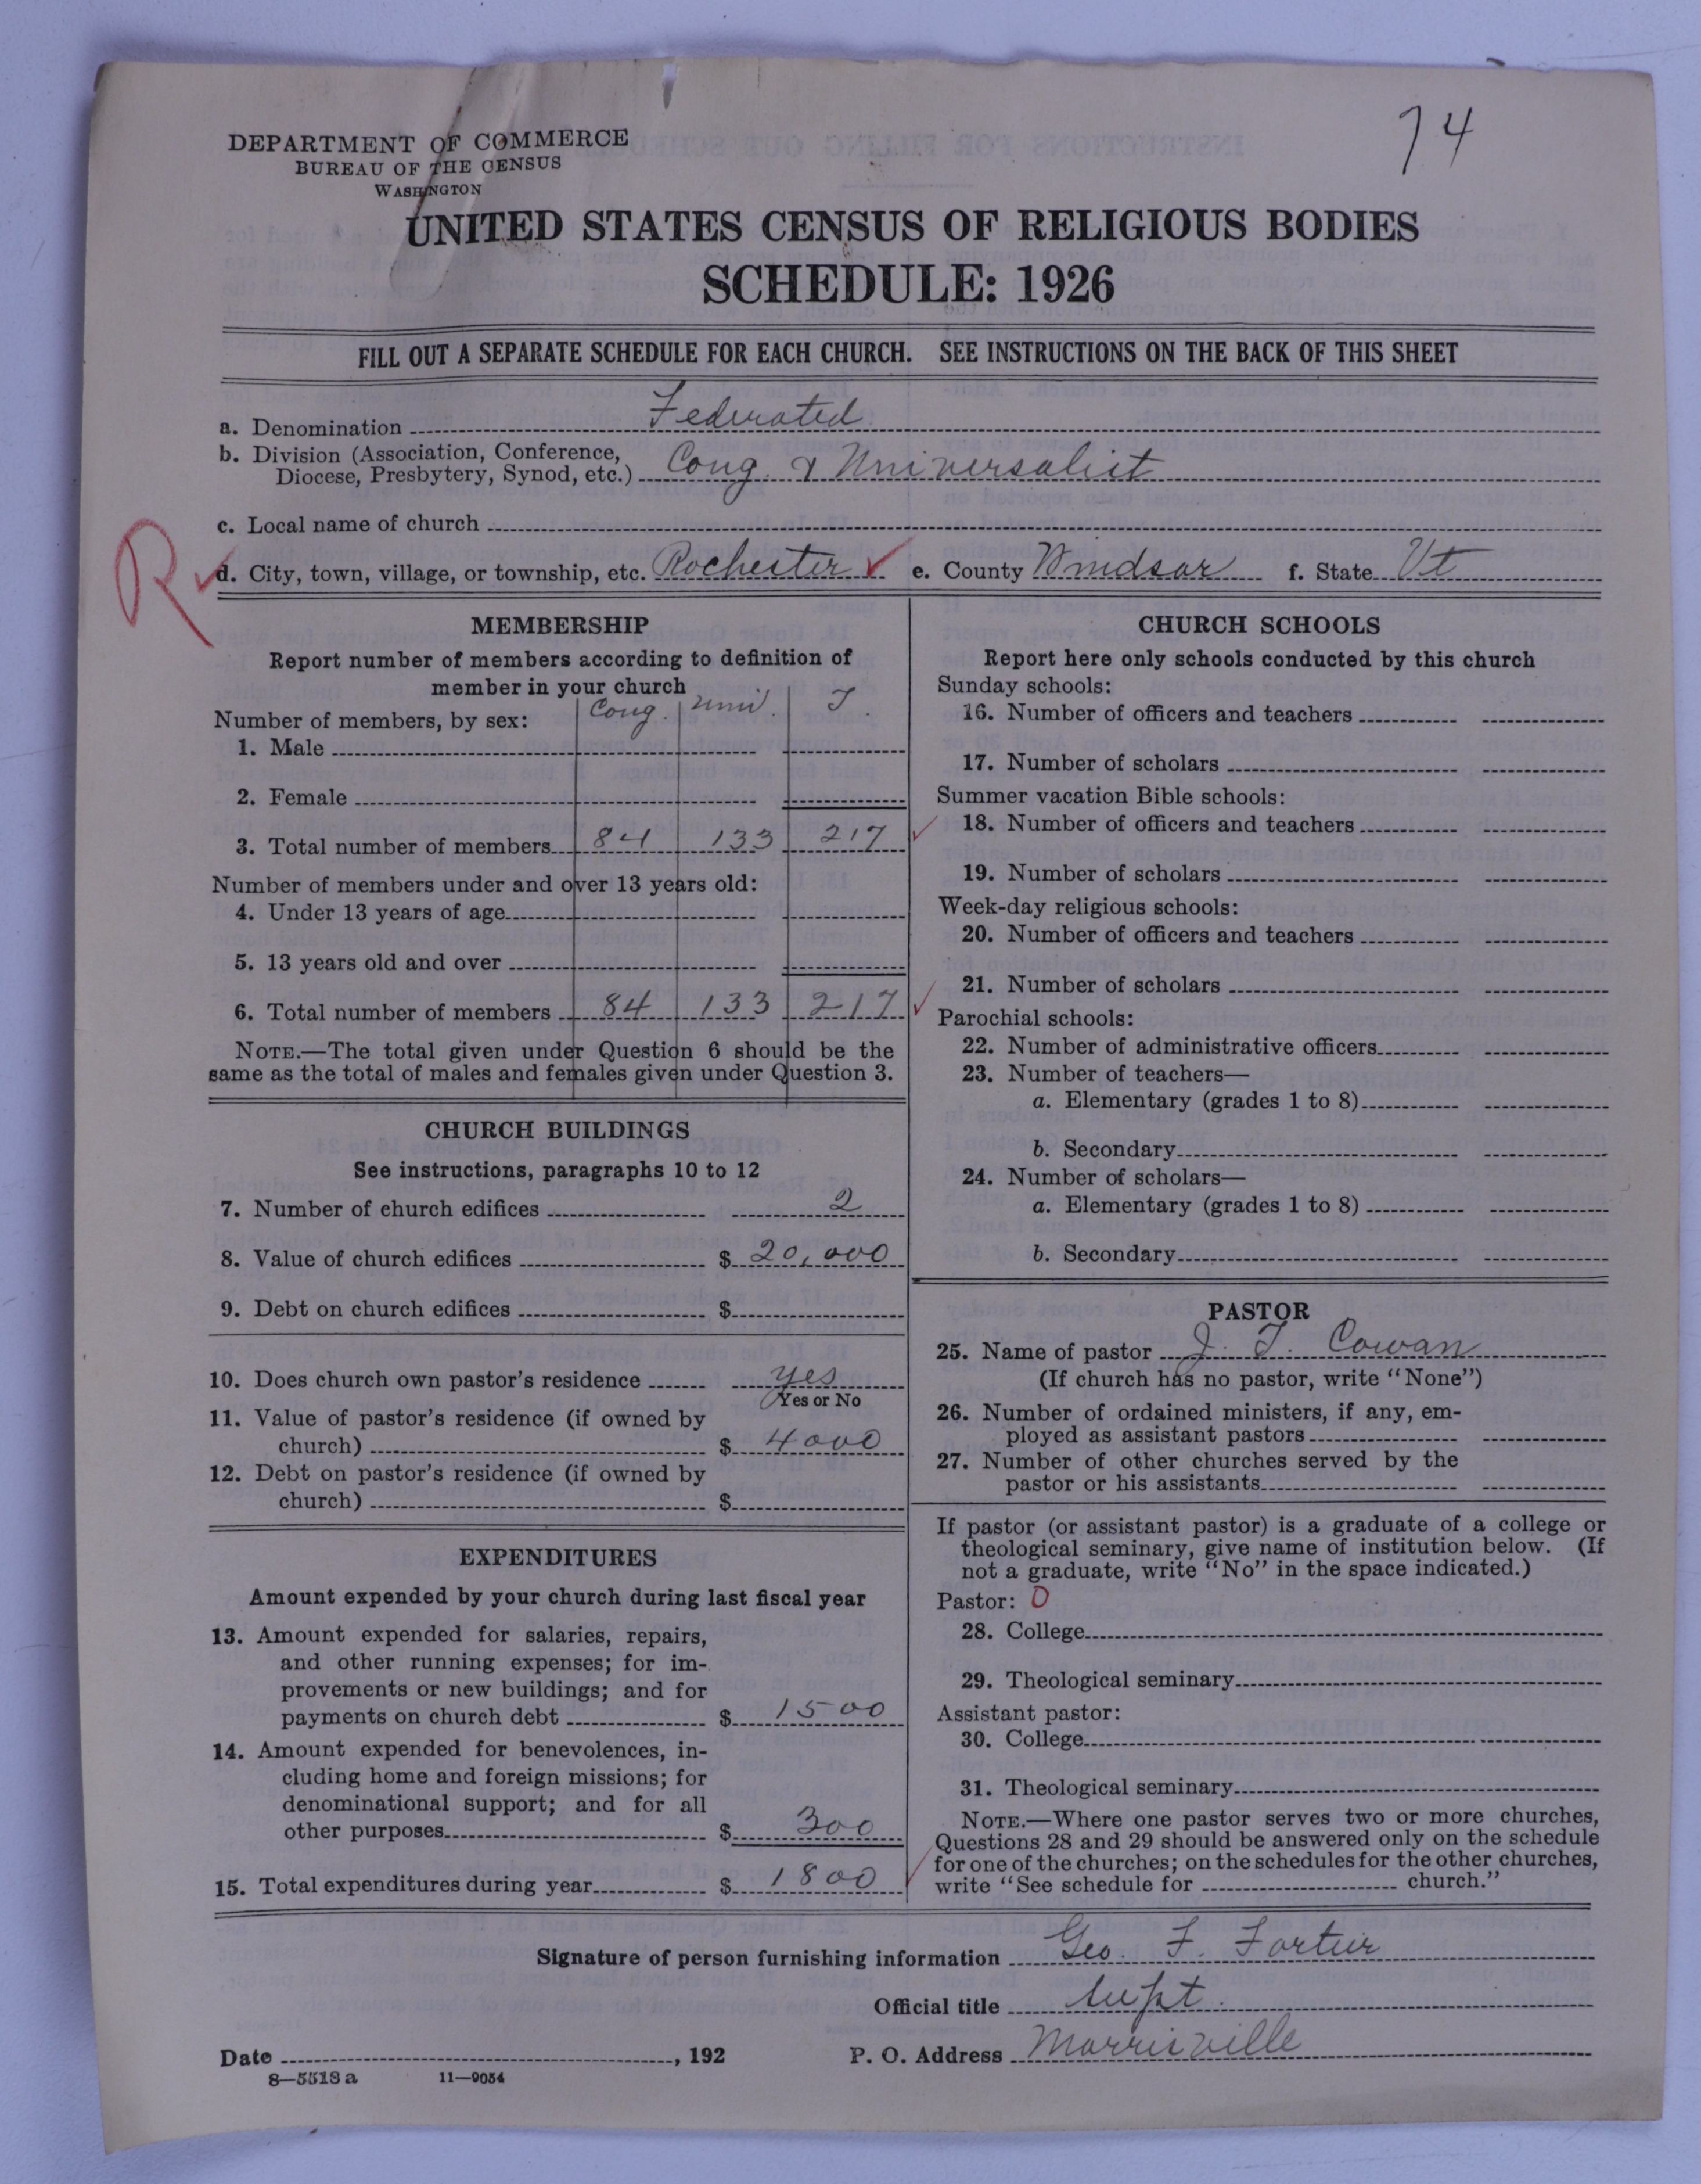 74
DEPARTMENT OF COMMERCE
BUREAU OF THE CENSUS
WASHINGTON
UNITED STATES CENSUS OF RELIGIOUS BODIES
SCHEDULE: 1926
FILL OUT A SEPARATE SCHEDULE FOR EACH CHURCH. SEE INSTRUCTIONS ON THE BACK OF THIS SHEET
a. Denomination Federated
b. Division (Association, Conference,
Diocese, Presbytery, Synod, etc.) Cong. & Universalist
c. Local name of church
R
d. City, town, village, or township, etc. Rochester e. County Windsor f. State Vt
MEMBERSHIP
Report number of members according to definition of
member in your church
Number of members, by sex: Cong. Univ. T.
1. Male
2. Female
3. Total number of members 84 133 217
Number of members under and over 13 years old:
4. Under 13 years of age
5. 13 years old and over
6. Total number of members 84 133 217
NOTE.—The total given under Question 6 should be the
same as the total of males and females given under Question 3.
CHURCH BUILDINGS
See instructions, paragraphs 10 to 12
7. Number of church edifices 2
8. Value of church edifices $ 20,000
9. Debt on church edifices $
10. Does church own pastor's residence yes
Yes or No
11. Value of pastor's residence (if owned by
church) $ 4000
12. Debt on pastor's residence (if owned by
church) $
EXPENDITURES
Amount expended by your church during last fiscal year
13. Amount expended for salaries, repairs,
and other running expenses; for im-
provements or new buildings; and for
payments on church debt $ 1500
14. Amount expended for benevolences, in-
cluding home and foreign missions; for
denominational support; and for all
other purposes $ 300
15. Total expenditures during year $ 1800
CHURCH SCHOOLS
Report here only schools conducted by this church
Sunday schools:
16. Number of officers and teachers
17. Number of scholars
Summer vacation Bible schools:
18. Number of officers and teachers
19. Number of scholars
Week-day religious schools:
20. Number of officers and teachers
21. Number of scholars
Parochial schools:
22. Number of administrative officers
23. Number of teachers—
a. Elementary (grades 1 to 8)
b. Secondary
24. Number of scholars—
a. Elementary (grades 1 to 8)
b. Secondary
PASTOR
25. Name of pastor J. T. Cowan
(If church has no pastor, write "None")
26. Number of ordained ministers, if any, em-
ployed as assistant pastors
27. Number of other churches served by the
pastor or his assistants
If pastor (or assistant pastor) is a graduate of a college or
theological seminary, give name of institution below. (If
not a graduate, write "No" in the space indicated.)
Pastor: 0
28. College
29. Theological seminary
Assistant pastor:
30. College
31. Theological seminary
NOTE.—Where one pastor serves two or more churches,
Questions 28 and 29 should be answered only on the schedule
for one of the churches; on the schedules for the other churches,
write "See schedule for church."
Signature of person furnishing information Geo. F. Fortier
Official title Supt.
Date , 192 P. O. Address Morrisville
8—5518 a 11—9054